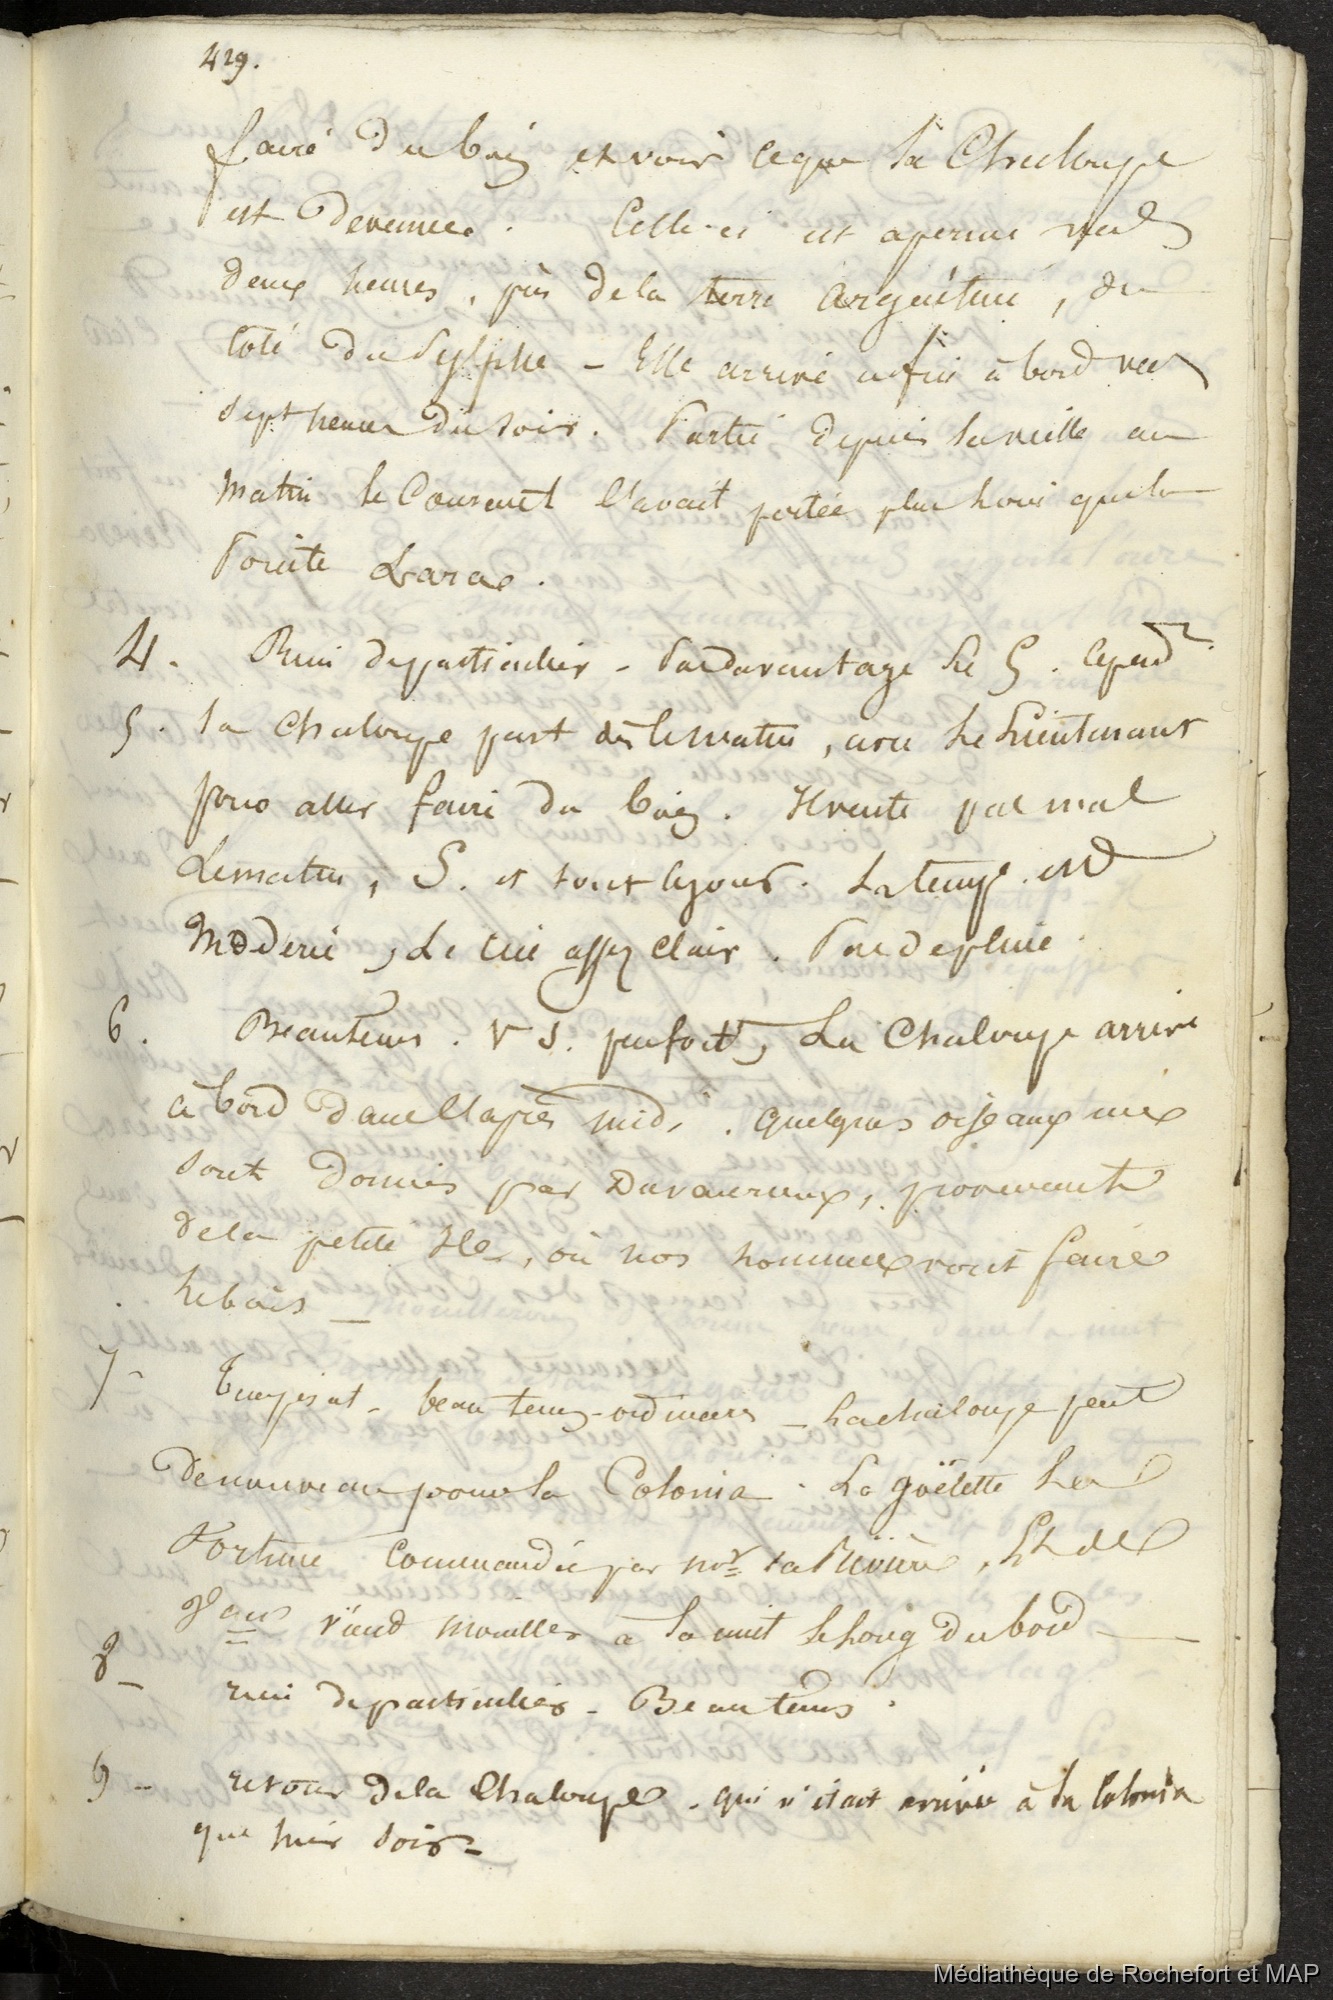 429.
faire du bois et voir ce que la Chaloupe
est devenue. Celle-ci est aperçue vers
deux heures, près de la terre argentine, du
coté du Sylphe – Elle arrive enfin à bord vers
sept heures du soir. Partie depuis la veille au
matin le Courant l'avait portée plus loin que la
Pointe Lara.
4. Rien de particulier – Pas davantage le 5. cepend.t
5. la Chaloupe part dès le matin, avec le Lieutenant
pour aller faire du bois. Il vente pas mal
le matin, S. et tout le jour. Le temps est
modéré, Le ciel assez clair. Pas de pluie.
6. Beau tems. V S. peu fort, La Chaloupe arrive
à bord dans l'après midi. quelques oiseaux
sont donnés par provenant
de la petite Ile, où nos hommes vont faire
le bois –
7 – Temps et. – beau temps ordinaire – La chaloupe part
de nouveau pour la Colonia. La goëlette La
Fortune commandée par Mr. la Rivière, Lt de
vient mouiller à la nuit le long du bord —
8 – rien de particulier – Beau tems.
9 – retour de la Chaloupe. qui n'était arrivée à la Colonia
que hier soir –
Médiathèque de Rochefort et MAP